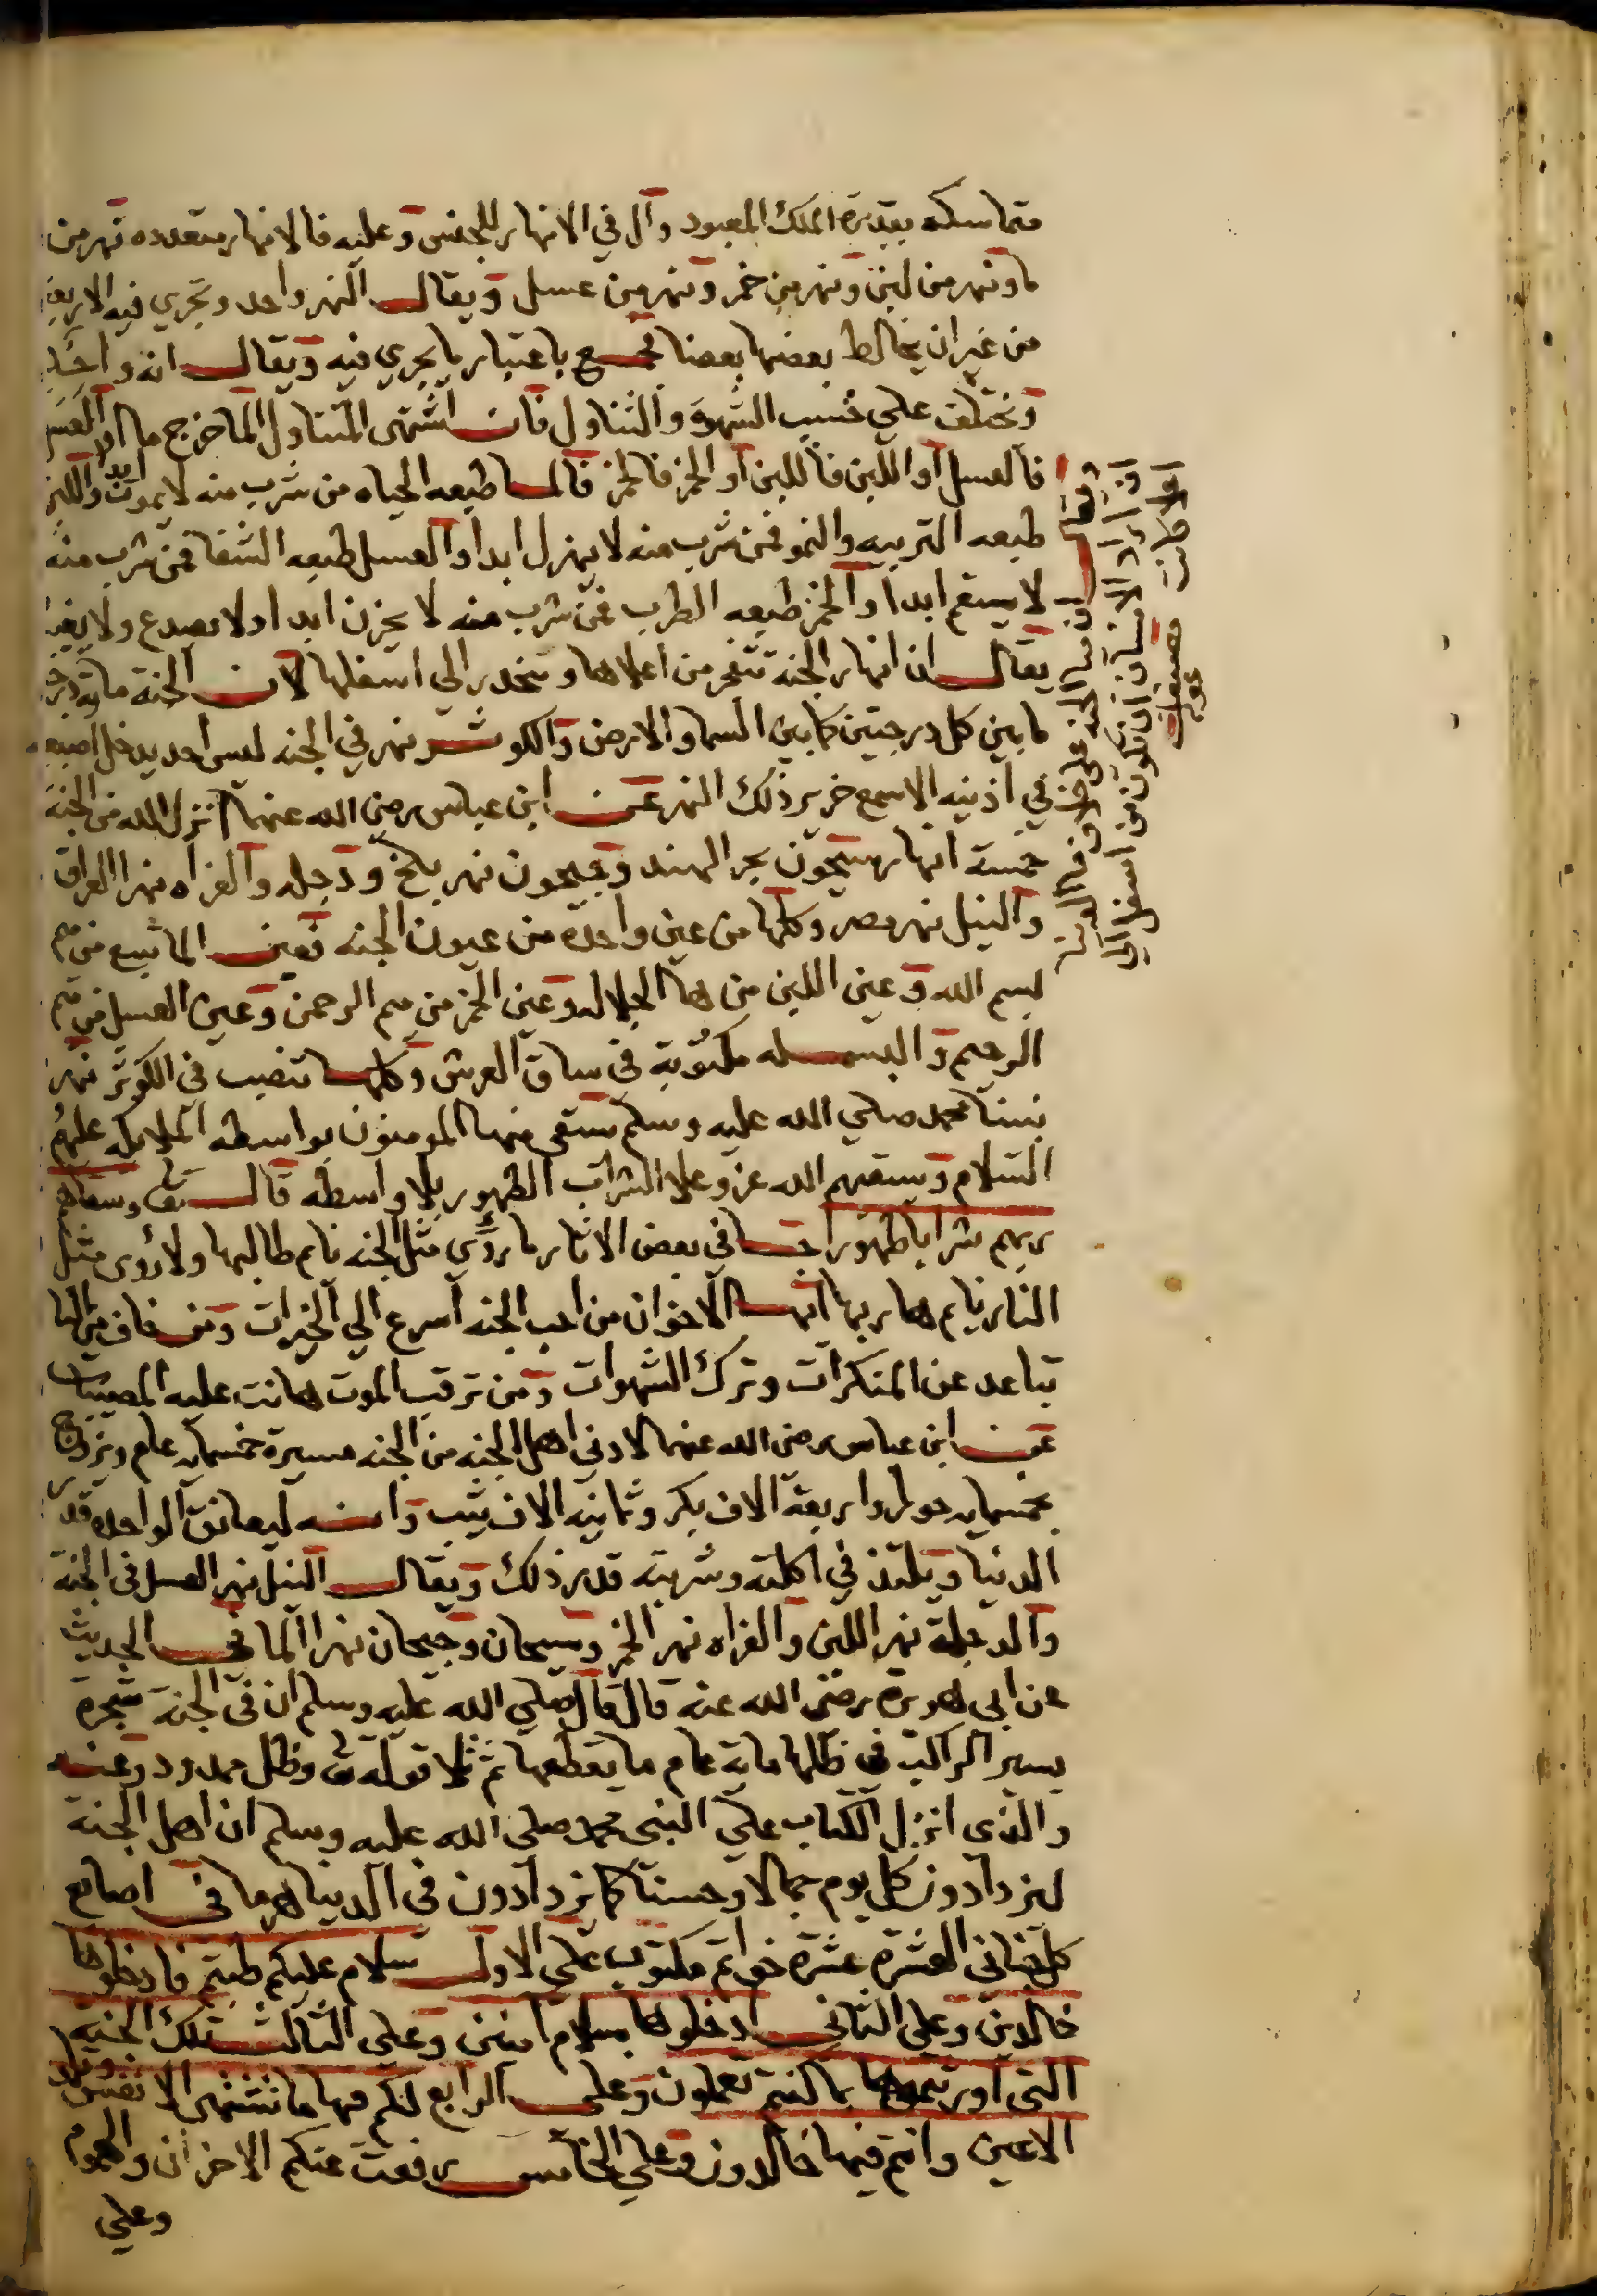 متماسكه بقدرة الملك المعبود وال في الانهار للجنس وعليه فالانهار متعدده نهر من
ما ونهر من لبن ونهر من خمر ونهر من عسل ويقال النهر واحد وتجري فيه الاربعة
من غير ان يخالط بعضها بعضا فجمع باعتبار ما يجري فيه ويقال انه واحد
وتختلف علي حسب الشهوة والتناول فان اشتهى المتناول الما خرج ما او العسل
فالعسل او اللبن فاللبن او الخمر فالخمر فالما طبعه الحياه من شرب منه لا يموت ابدا واللبن
طبعه التربيه والنمو فمن شرب منه لا يهزل ابدا والعسل طبعه الشفا فمن شرب منه
لا يسقم ابدا والخمر طبعه الطرب فمن شرب منه لا يحزن ابدا ولا يصدع ولا
يقال ان انهار الجنة تنفجر من اعلاها وتنحدر الي اسفلها لان الجنة ماية درجة
ما بين كل درجتين كما بين السما والارض والكوثر نهر في الجنه ليس احد يدخل اصبعه
في اذنيه الا سمع خرير ذلك النهر عن ابن عباس رضي الله عنهما انزل الله من الجنة
خمسة انهار سيحون بحر الهند وجيحون نهر بلخ ودجله والفراه نهرا العراق
والنيل نهر مصر وكلها من عين واحده من عيون الجنه فعين الما تنبع من ميم
بسم الله وعين اللبن من ها الجلاله وعين الخمر من ميم الرحمن وعين العسل من ميم
الرحيم والبسمله مكتوبة في ساق العرش وكلها تنصب في الكوثر نهر
نبينا محمد صلي الله عليه وسلم تسقى منها المومنون بواسطه الملايكه عليهم
السلام وسيقيهم الله عز وعلا الشراب الطهور بلا واسطه قال تعالى وسقاهم
ربهم شرابا طهورا جا في بعض الاثار ما روي مثل الجنه نام طالبها ولا روى مثل
النار نام هاربها ايها الاخوان من احب الجنه اسرع الي الخيرات ومن خاف من النار
تباعد عن المنكرات وترك الشهوات ومن ترقب الموت هانت عليه المصيبات
عن ابن عباس رضي الله عنهما لادني اهل الجنه من الجنه مسيرة خمسمايه عام ويزوج
بخمسمايه حورا واربعة الاف بكر وثمانيه الاف ثيب وانه ليعانق الواحده قدر
الدنيا ويلتذ في اكلته وشربته قدر ذلك ويقال النيل نهر العسل في الجنة
والدجلة نهر اللبن والفراه نهر الخمر وسيحان وجيحان نهرا الما في الحديث
عن ابي هريرة رضي الله عنه قال قال صلي الله عليه وسلم ان في الجنة شجرة
يسير الراكب في ظلها ماية عام ما يقطعها ثم تلا قوله تعالى وظل ممدود وعنه
والذي انزل الكتاب علي النبي محمد صلي الله عليه وسلم ان اهل الجنة
ليزدادون كل يوم جمالا وحسنا كما يزدادون في الدنيا هرما في اصابع
كل جناني العشرة عشرة خواتم مكتوب علي الاول سلام عليكم طبتم فادخلوها
خالدين وعلي الثاني ادخلوها بسلام امنين وعلي الثالث تلك الجنه
التي اورثتموها بما كنتم تعملون وعلي الرابع لكم فيها ما تشتهي الانفس وتلذ
الاعين وانتم فيها خالدون وعلي الخامس رفعت عنكم الاحزان والهموم
وعلي
في الجنة علي
ان اراد الانسان ان تكون من اسفل الي
والا كانت